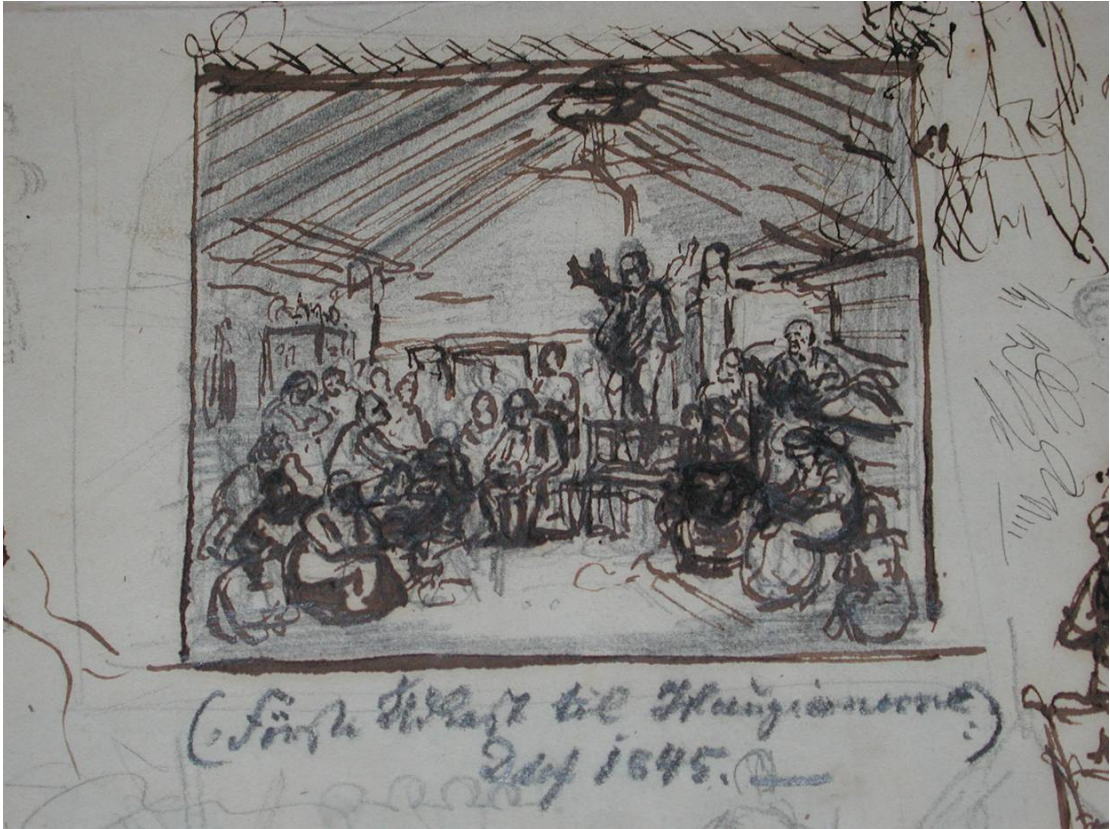 (Förste Udkast til Haugianerne.)
Ddf 1845.